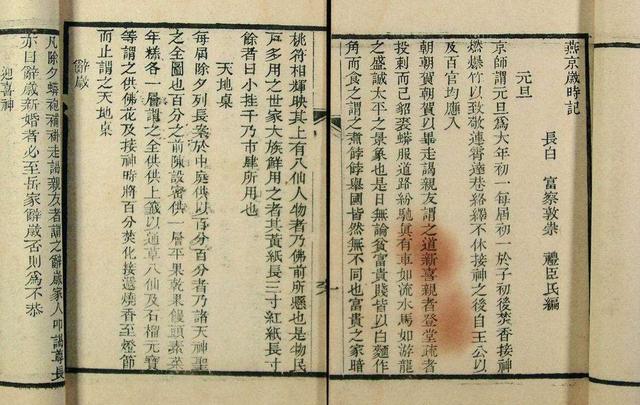 燕京歲時記
長白　富察敦崇　禮臣氏編
元旦
京師謂元旦爲大年初一每屆初一於子初後焚香接神
燃爆竹以致敬連霄達巷絡繹不休接神之後自王公以
及百官均應入
朝朝賀朝賀以畢走謁親友謂之道新喜親者登堂疏者
投刺而已貂裘蟒服道路紛馳眞有車如流水馬如游龍
之盛誠太平之景象也是日無論貧富貴賤皆以白麵作
角而食之謂之煮餑餑舉國皆然無不同也富貴之家暗
桃符相輝映其上有八仙人物者乃佛前所懸也是物民
戸多用之世家大族鮮用之者其黃紙長三寸紅紙長寸
餘者曰小挂千乃市肆所用也
天地桌
每屆除夕列長案於中庭供以百分百分者乃諸天神聖
之全圖也百分之前陳設蜜供一層平果乾果饅頭素菜
年糕各一層謂之全供供上籤以通草八仙及石榴元寶
等謂之供佛花及接神時將百分焚化接遞燒香至燈節
而止謂之天地桌
辭歲
凡除夕蟒袍補褂走謁親友者謂之辭歲家人叩謁尊長
亦曰辭歲新婚者必至岳家辭歲否則爲不恭
迎喜神